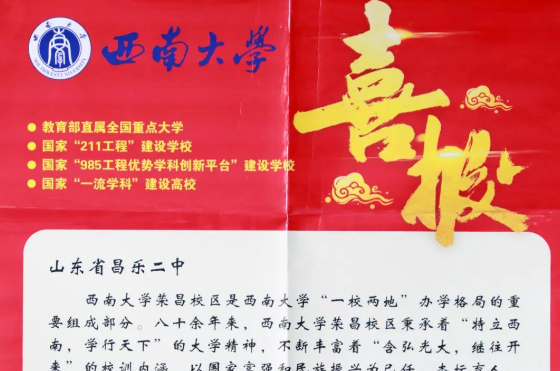 西南大学
喜报
教育部直属全国重点大学
国家“211工程”建设学校
国家“985工程优势学科创新平台”建设学校
国家“一流学科”建设高校
山东省昌乐二中
西南大学荣昌校区是西南大学“一校两地”办学格局的重
要组成部分。八十余年来，西南大学荣昌校区秉承着“特立西
南，学行天下”的大学精神，不断丰富着“含弘光大，继往开
来”的校训内涵，以国家富强和民族振兴为己任，